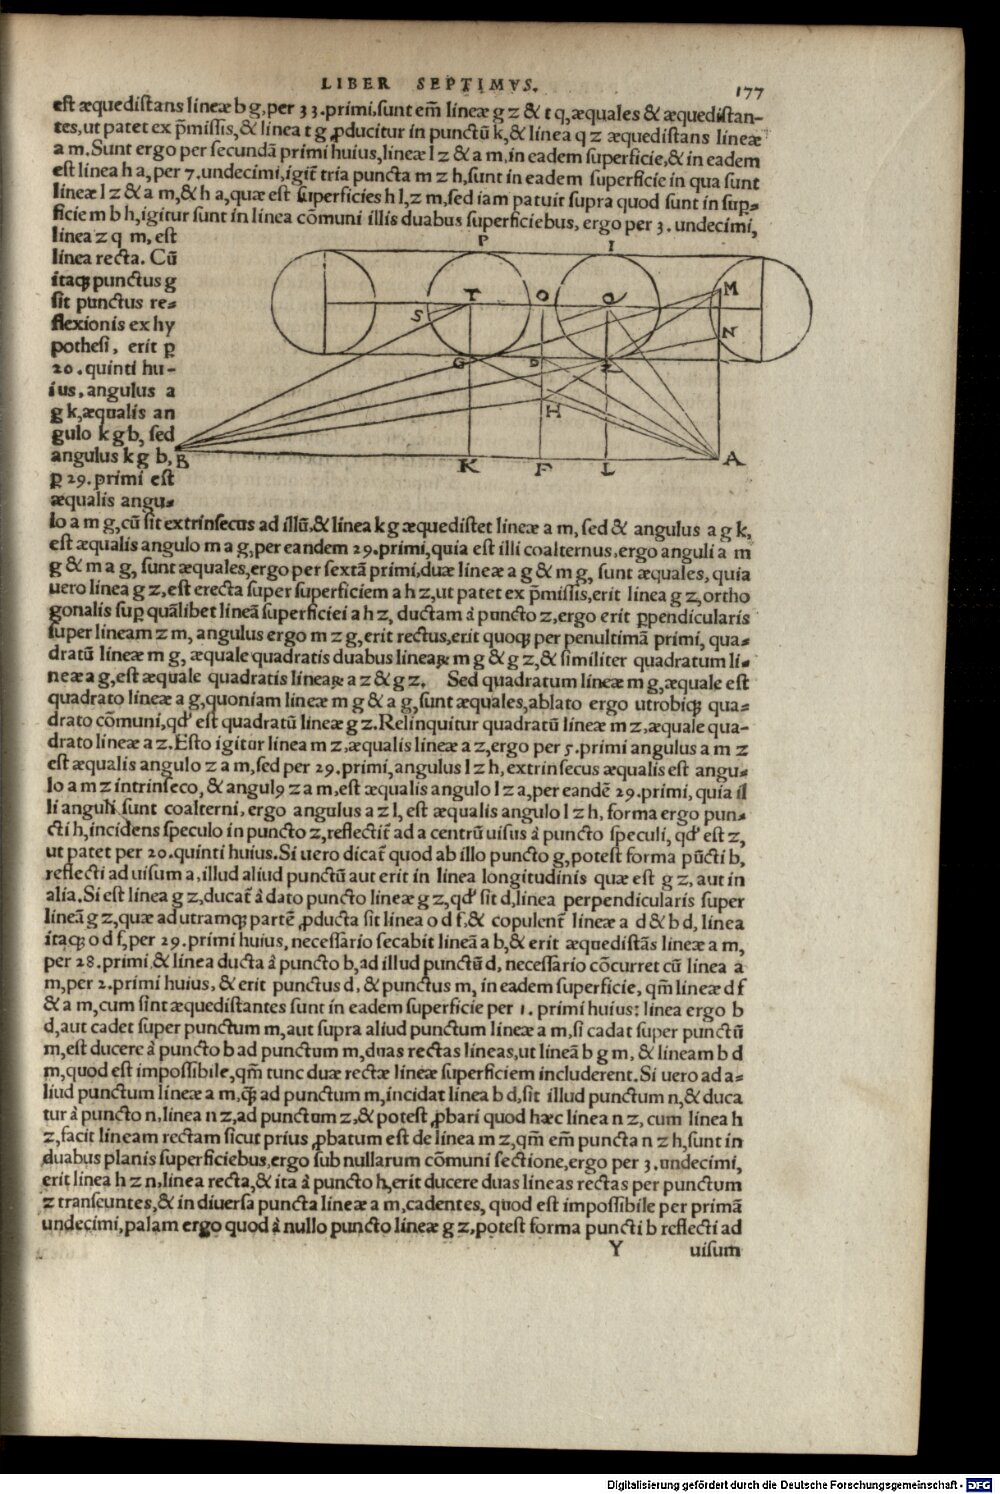 LIBER SEPTIMVS.
177
est æquedistans lineæ b g, per 33. primi. sunt em̄ lineæ g z & t q, æquales & æquedistan-
tes, ut patet ex p̄missis, & linea t g ꝓducitur in punctū k, & linea q z æquedistans lineæ
a m. Sunt ergo per secundā primi huius, lineæ l z & a m, in eadem superficie, & in eadem
est linea h a, per 7. undecimi, igit̄ tria puncta m z h, sunt in eadem superficie in qua sunt
lineæ l z & a m, & h a, quæ est superficies h l, z m, sed iam patuit supra quod sunt in suꝑ-
ficie m b h, igitur sunt in linea cōmuni illis duabus superficiebus, ergo per 3. undecimi,
linea z q m, est
linea recta. Cū
itaqꝫ punctus g
sit punctus re-
flexionis ex hy
pothesi, erit ꝑ
20. quinti hu-
ius, angulus a
g k, æqualis an
gulo k g b, sed
angulus k g b,
ꝑ 29. primi est
æqualis angu-
P I
T O Q M
S N
G D Z
H
B K F L A
lo a m g, cū sit extrinsecus ad illū, & linea k g æquedistet lineæ a m, sed & angulus a g k,
est æqualis angulo m a g, per eandem 29. primi, quia est illi coalternus, ergo anguli a m
g & m a g, sunt æquales, ergo per sextā primi, duæ lineæ a g & m g, sunt æquales, quia
uero linea g z, est erecta super superficiem a h z, ut patet ex p̄missis, erit linea g z, ortho
gonalis suꝑ quālibet lineā superficiei a h z, ductam à puncto z, ergo erit ꝑpendicularis
super lineam z m, angulus ergo m z g, erit rectus, erit quoqꝫ per penultimā primi, qua-
dratū lineæ m g, æquale quadratis duabus lineaꝝ m g & g z, & similiter quadratum li-
neæ a g, est æquale quadratis lineaꝝ a z & g z. Sed quadratum lineæ m g, æquale est
quadrato lineæ a g, quoniam lineæ m g & a g, sunt æquales, ablato ergo utrobiqꝫ qua-
drato cōmuni, qd' est quadratū lineæ g z. Relinquitur quadratū lineæ m z, æquale qua-
drato lineæ a z. Esto igitur linea m z, æqualis lineæ a z, ergo per 5. primi angulus a m z
est æqualis angulo z a m, sed per 29. primi, angulus l z h, extrinsecus æqualis est angu-
lo a m z intrinseco, & angulꝰ z a m, est æqualis angulo l z a, per eandē 29. primi, quia il
li anguli sunt coalterni, ergo angulus a z l, est æqualis angulo l z h, forma ergo pun-
cti h, incidens speculo in puncto z, reflectit̄ ad a centrū uisus à puncto speculi, qd' est z,
ut patet per 20. quinti huius. Si uero dicat̄ quod ab illo puncto g, potest forma pūcti b,
reflecti ad uisum a, illud aliud punctū aut erit in linea longitudinis quæ est g z, aut in
alia. Si est linea g z, ducat̄ à dato puncto lineæ g z, qd' sit d, linea perpendicularis super
lineā g z, quæ ad utramqꝫ partē ꝓducta sit linea o d f, & copulent̄ lineæ a d & b d, linea
itaqꝫ o d f, per 29. primi huius, necessario secabit lineā a b, & erit æquedistās lineæ a m,
per 28. primi & linea ducta à puncto b, ad illud punctū d, necessario cōcurret cū linea a
m, per 2. primi huius, & erit punctus d, & punctus m, in eadem superficie, qm̄ lineæ d f
& a m, cum sint æquedistantes sunt in eadem superficie per 1. primi huius: linea ergo b
d, aut cadet super punctum m, aut supra aliud punctum lineæ a m, si cadat super punctū
m, est ducere à puncto b ad punctum m, duas rectas lineas, ut lineā b g m, & lineam b d
m, quod est impossibile, qm̄ tunc duæ rectæ lineæ superficiem includerent. Si uero ad a-
liud punctum lineæ a m, ꝙ̄ ad punctum m, incidat linea b d, sit illud punctum n, & duca
tur à puncto n, linea n z, ad punctum z, & potest ꝓbari quod hæc linea n z, cum linea h
z, facit lineam rectam sicut prius ꝓbatum est de linea m z, qm̄ em̄ puncta n z h, sunt in
duabus planis superficiebus, ergo sub nullarum cōmuni sectione, ergo per 3. undecimi,
erit linea h z n, linea recta, & ita à puncto h, erit ducere duas lineas rectas per punctum
z transeuntes, & in diuersa puncta lineæ a m, cadentes, quod est impossibile per primā
undecimi, palam ergo quod à nullo puncto lineæ g z, potest forma puncti b reflecti ad
Y uisum
Digitalisierung gefördert durch die Deutsche Forschungsgemeinschaft - DFG